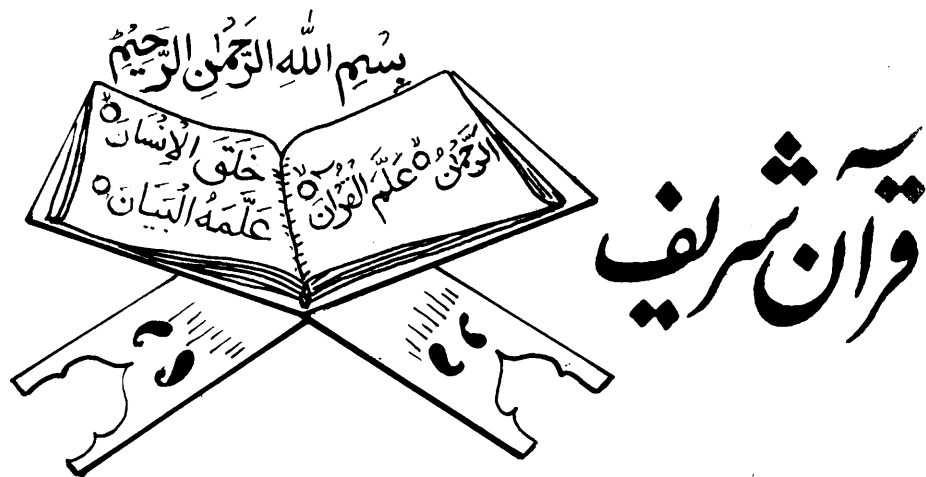 بِسْمِ اللهِ الرَّحْمٰنِ الرَّحِيْمِ
الرَّحْمٰنُ ۙ عَلَّمَ الْقُرْاٰنَ ۙ
خَلَقَ الْاِنْسَانَ ۙ
عَلَّمَهُ الْبَيَانَ ۙ
قرآن شریف